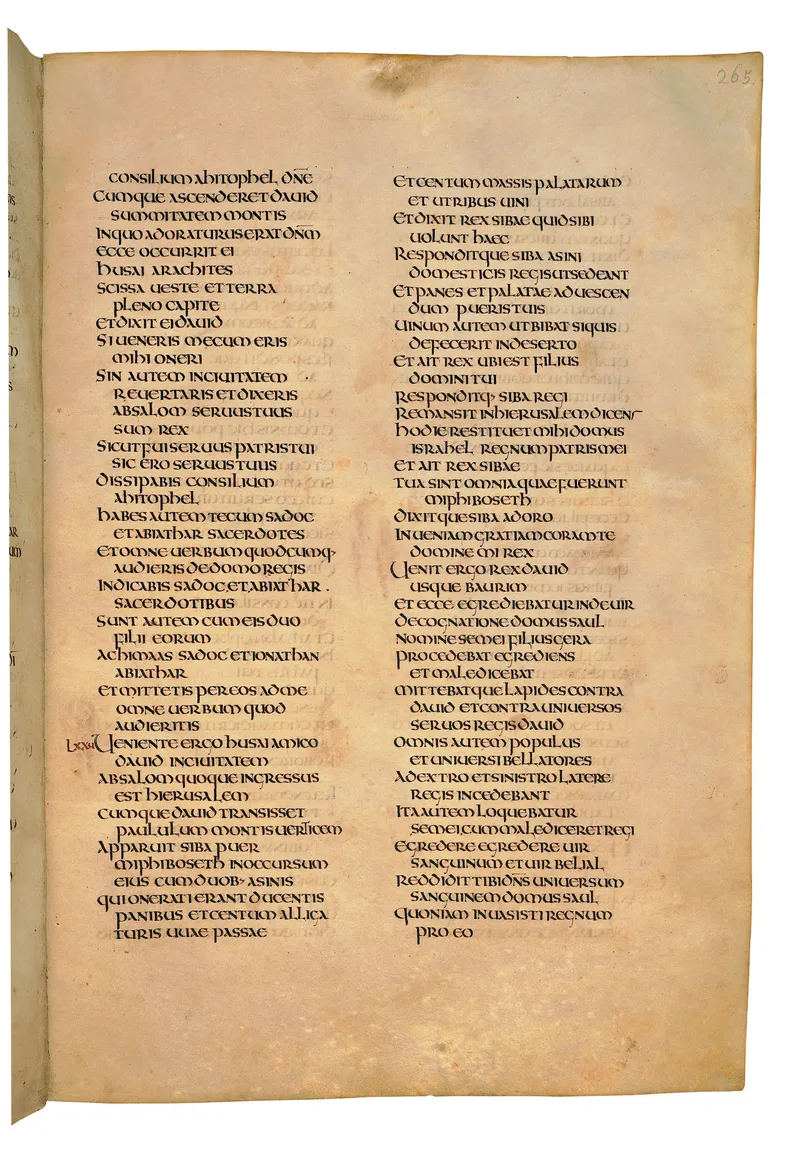 265
CONSILIUM AHITOPHEL DN̄E
CUMQUE ASCENDERET DAUID
SUMMITATEM MONTIS
IN QUO ADORATURUS ERAT DN̄M
ECCE OCCURRIT EI
HUSAI ARACHITES
SCISSA UESTE ET TERRA
PLENO CAPITE
ET DIXIT EI DAUID
SI UENERIS MECUM ERIS
MIHI ONERI
SIN AUTEM IN CIUITATEM
REUERTARIS ET DIXERIS
ABSALOM SERUUS TUUS
SUM REX
SICUT FUI SERUUS PATRIS TUI
SIC ERO SERUUS TUUS
DISSIPABIS CONSILIUM
AHITOPHEL
HABES AUTEM TECUM SADOC
ET ABIATHAR SACERDOTES
ET OMNE UERBUM QUODCUMQ·
AUDIERIS DE DOMO REGIS
INDICABIS SADOC ET ABIATHAR
SACERDOTIBUS
SUNT AUTEM CUM EIS DUO
FILII EORUM
ACHIMAAS SADOC ET IONATHAN
ABIATHAR
ET MITTETIS PER EOS AD ME
OMNE UERBUM QUOD
AUDIERITIS
LXXII UENIENTE ERGO HUSAI AMICO
DAUID IN CIUITATEM
ABSALOM QUOQUE INGRESSUS
EST HIERUSALEM
CUMQUE DAUID TRANSISSET
PAULULUM MONTIS UERTICEM
APPARUIT SIBA PUER
MIPHIBOSETH IN OCCURSUM
EIUS CUM DUOB· ASINIS
QUI ONERATI ERANT DUCENTIS
PANIBUS ET CENTUM ALLIGA
TURIS UUAE PASSAE
ET CENTUM MASSIS PALATARUM
ET UTRIBUS UINI
ET DIXIT REX SIBAE QUID SIBI
UOLUNT HAEC
RESPONDITQUE SIBA ASINI
DOMESTICIS REGIS UT SEDEANT
ET PANES ET PALATAE AD UESCEN
DUM PUERIS TUIS
UINUM AUTEM UT BIBAT SIQUIS
DEFECERIT IN DESERTO
ET AIT REX UBI EST FILIUS
DOMINI TUI
RESPONDITQ· SIBA REGI
REMANSIT IN HIERUSALEM DICENS
HODIE RESTITUET MIHI DOMUS
ISRAHEL REGNUM PATRIS MEI
ET AIT REX SIBAE
TUA SINT OMNIA QUAE FUERUNT
MIPHIBOSETH
DIXITQUE SIBA ADORO
INUENIAM GRATIAM CORAM TE
DOMINE MI REX
UENIT ERGO REX DAUID
USQUE BAURIM
ET ECCE EGREDIEBATUR INDE UIR
DE COGNATIONE DOMUS SAUL
NOMINE SEMEI FILIUS GERA
PROCEDEBAT EGREDIENS
ET MALEDICEBAT
MITTEBATQUE LAPIDES CONTRA
DAUID ET CONTRA UNIUERSOS
SERUOS REGIS DAUID
OMNIS AUTEM POPULUS
ET UNIUERSI BELLATORES
A DEXTRO ET SINISTRO LATERE
REGIS INCEDEBANT
ITA AUTEM LOQUEBATUR
SEMEI CUM MALEDICERET REGI
EGREDERE EGREDERE UIR
SANGUINUM ET UIR BELIAL
REDDIDIT TIBI DN̄S UNIUERSUM
SANGUINEM DOMUS SAUL
QUONIAM INUASISTI REGNUM
PRO EO